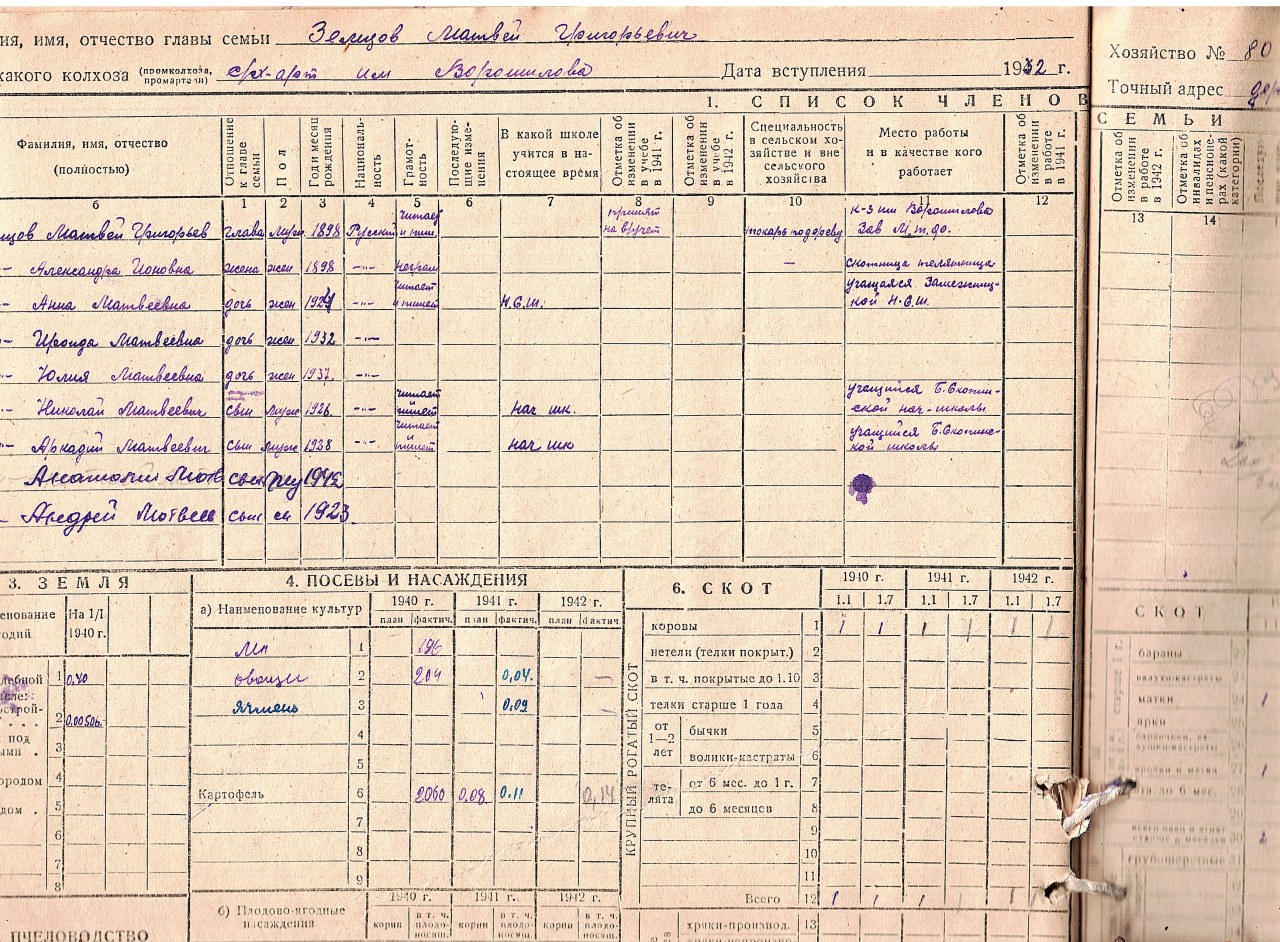 ия, имя, отчество главы семьи Земцов Матвей Григорьевич
какого колхоза (промколхоза, промартели) с/х-арт им Ворошилова Дата вступления 1932 г.
Хозяйство № 80
Точный адрес дер
1. СПИСОК ЧЛЕНОВ СЕМЬИ
Фамилия, имя, отчество (полностью)
Отношение к главе семьи
Пол
Год и месяц рождения
Националь-ность
Грамот-ность
Последую-щие изме-нения
В какой школе учится в на-стоящее время
Отметка об изменении в учебе в 1941 г.
Отметка об изменении в учебе в 1942 г.
Специальность в сельском хо-зяйстве и вне сельского хозяйства
Место работы и в качестве кого работает
Отметка об изменении в работе в 1941 г.
Отметка об изменении в работе в 1942 г.
Отметка об инвалидах и пенсионе-рах (какой категории)
б 1 2 3 4 5 6 7 8 9 10 11 12 13 14
цов Матвей Григорьев глава муж 1898 Русский читает и пиш. принят на в/учет токарь по дереву к-з им Ворошилова Зав М.т.ф.
-"- Александра Ионовна жена жен 1898 -"- неграм — скотница телятница
-"- Анна Матвеевна дочь жен 1924 -"- читает и пишет Н.С.Ш. учащаяся Замежниц-кой Н.С.Ш.
-"- Ираида Матвеевна дочь жен 1932 -"-
-"- Юлия Матвеевна дочь жен 1937. -"-
-"- Николай Матвеевич сын муж 1926 -"- читает пишет нач шк. учащийся Б.Скопин-ской нач-школы
-"- Аркадий Матвеевич сын муж 1928 -"- читает пишет нач шк учащийся Б.Скопинс-кой школы
Анатолий Матв сын 1942
- Андрей Матвеев сын 1923
3. ЗЕМЛЯ
4. ПОСЕВЫ И НАСАЖДЕНИЯ
6. СКОТ
1940 г. 1941 г. 1942 г.
1.1 1.7 1.1 1.7 1.1 1.7
СКОТ
енование годий На 1/I 1940 г.
а) Наименование культур
1940 г. 1941 г. 1942 г.
план фактич. план фактич. план фактич
лебной 1 0,40
исле:
строй-
. . . 2 0.0050б.
под
ыми . 3
ородом 4
дом . 5
6
7
8
Лен 1 196
овощи 2 204 0,04. —
Ячмень 3 0.09
4
5
Картофель 6 2060 0,08 0.11 0,14
7
8
9
КРУПНЫЙ РОГАТЫЙ СКОТ
коровы 1 1 1 1 1 1 1
нетели (телки покрыт.) 2
в т. ч. покрытые до 1.10 3
телки старше 1 года 4
от 1—2 лет
бычки 5
волики-кастраты 6
те-лята
от 6 мес. до 1 г. 7
до 6 месяцев 8
9
10
11
Всего 12 1 1 1 1 1 1
хряки-производ. 13
бараны
валухи-кастраты
матки 1
ярки
грубошерстные
б) Плодово-ягодные насаждения
1940 г. 1941 г. 1942 г.
корни в т. ч. плодо-носящ. корни в т. ч. плодо-носящ. корни в т. ч. плодо-носящ.
ПЧЕЛОВОДСТВО